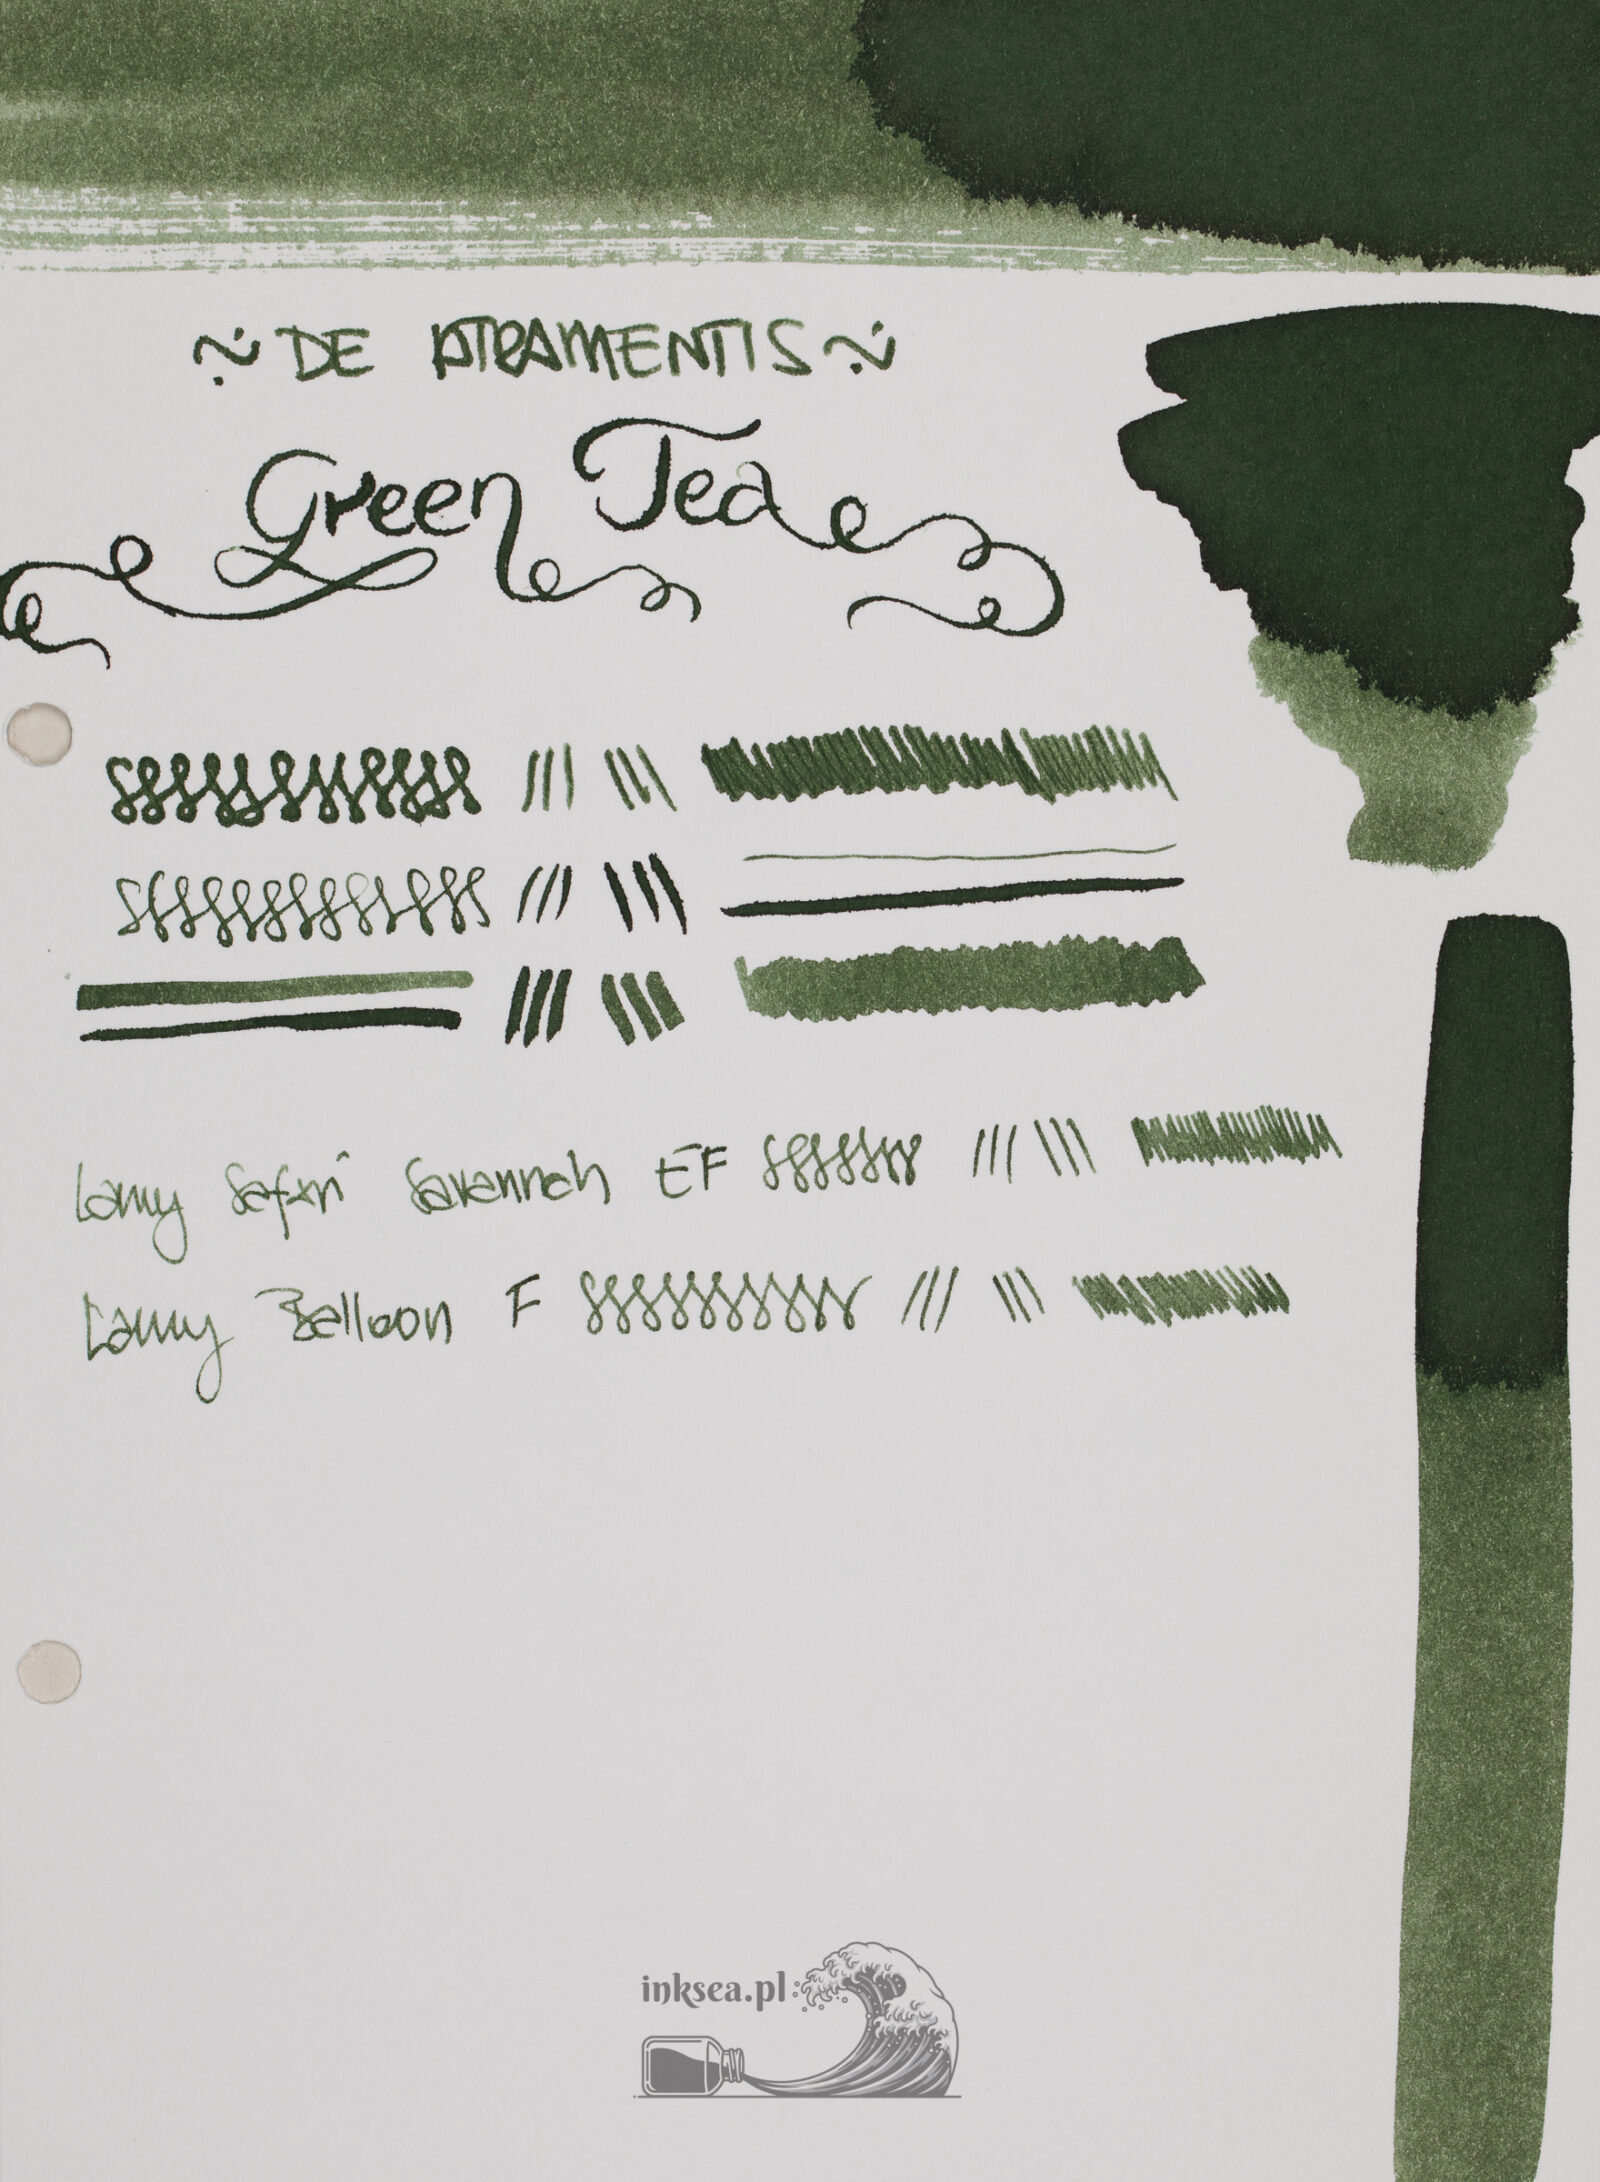 DE ATRAMENTIS
Green Tea
Lamy Safari Savannah EF
Lamy Balloon F
inksea.pl